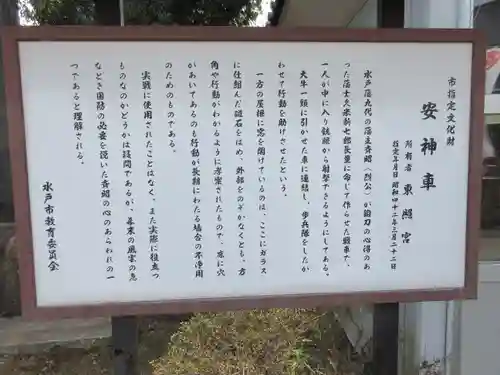 市指定文化財
安神車
所有者 東照宮
指定年月日 昭和四十二年三月二十二日
水戸藩九代の藩主斉昭(烈公)が鋳刀の心得のあ
った藩士久米新七郎長量に命じて作らせた戦車で、
一人が中に入り銃眼から射撃できるようにしてある。
大牛一頭に引かせた車に連結し、歩兵隊をしたが
わせて行動を助けさせたという。
一方の屋根に窓を開けているのは、ここにガラス
に仕組んだ磁石をはめ、外部をのぞかなくとも、方
角や行動がわかるように考案されたもので、底に穴
があいてあるのも行動が長期にわたる場合の不浄用
のためのものである。
実戦に使用されたことはなく、また実際に役立つ
ものなのかどうかは疑問であるが、幕末の風雲の急
なとき国防の必要を説いた斉昭の心のあらわれの一
つであると理解される。
水戸市教育委員会